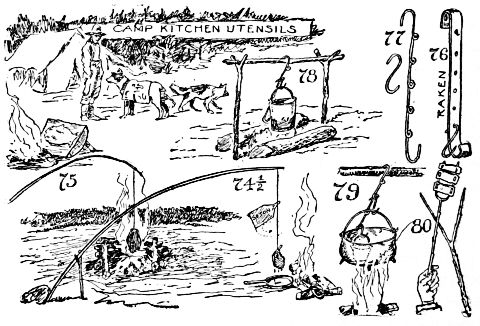 CAMP KITCHEN UTENSILS
77
76
RAKEN
78
75
74½
79
80